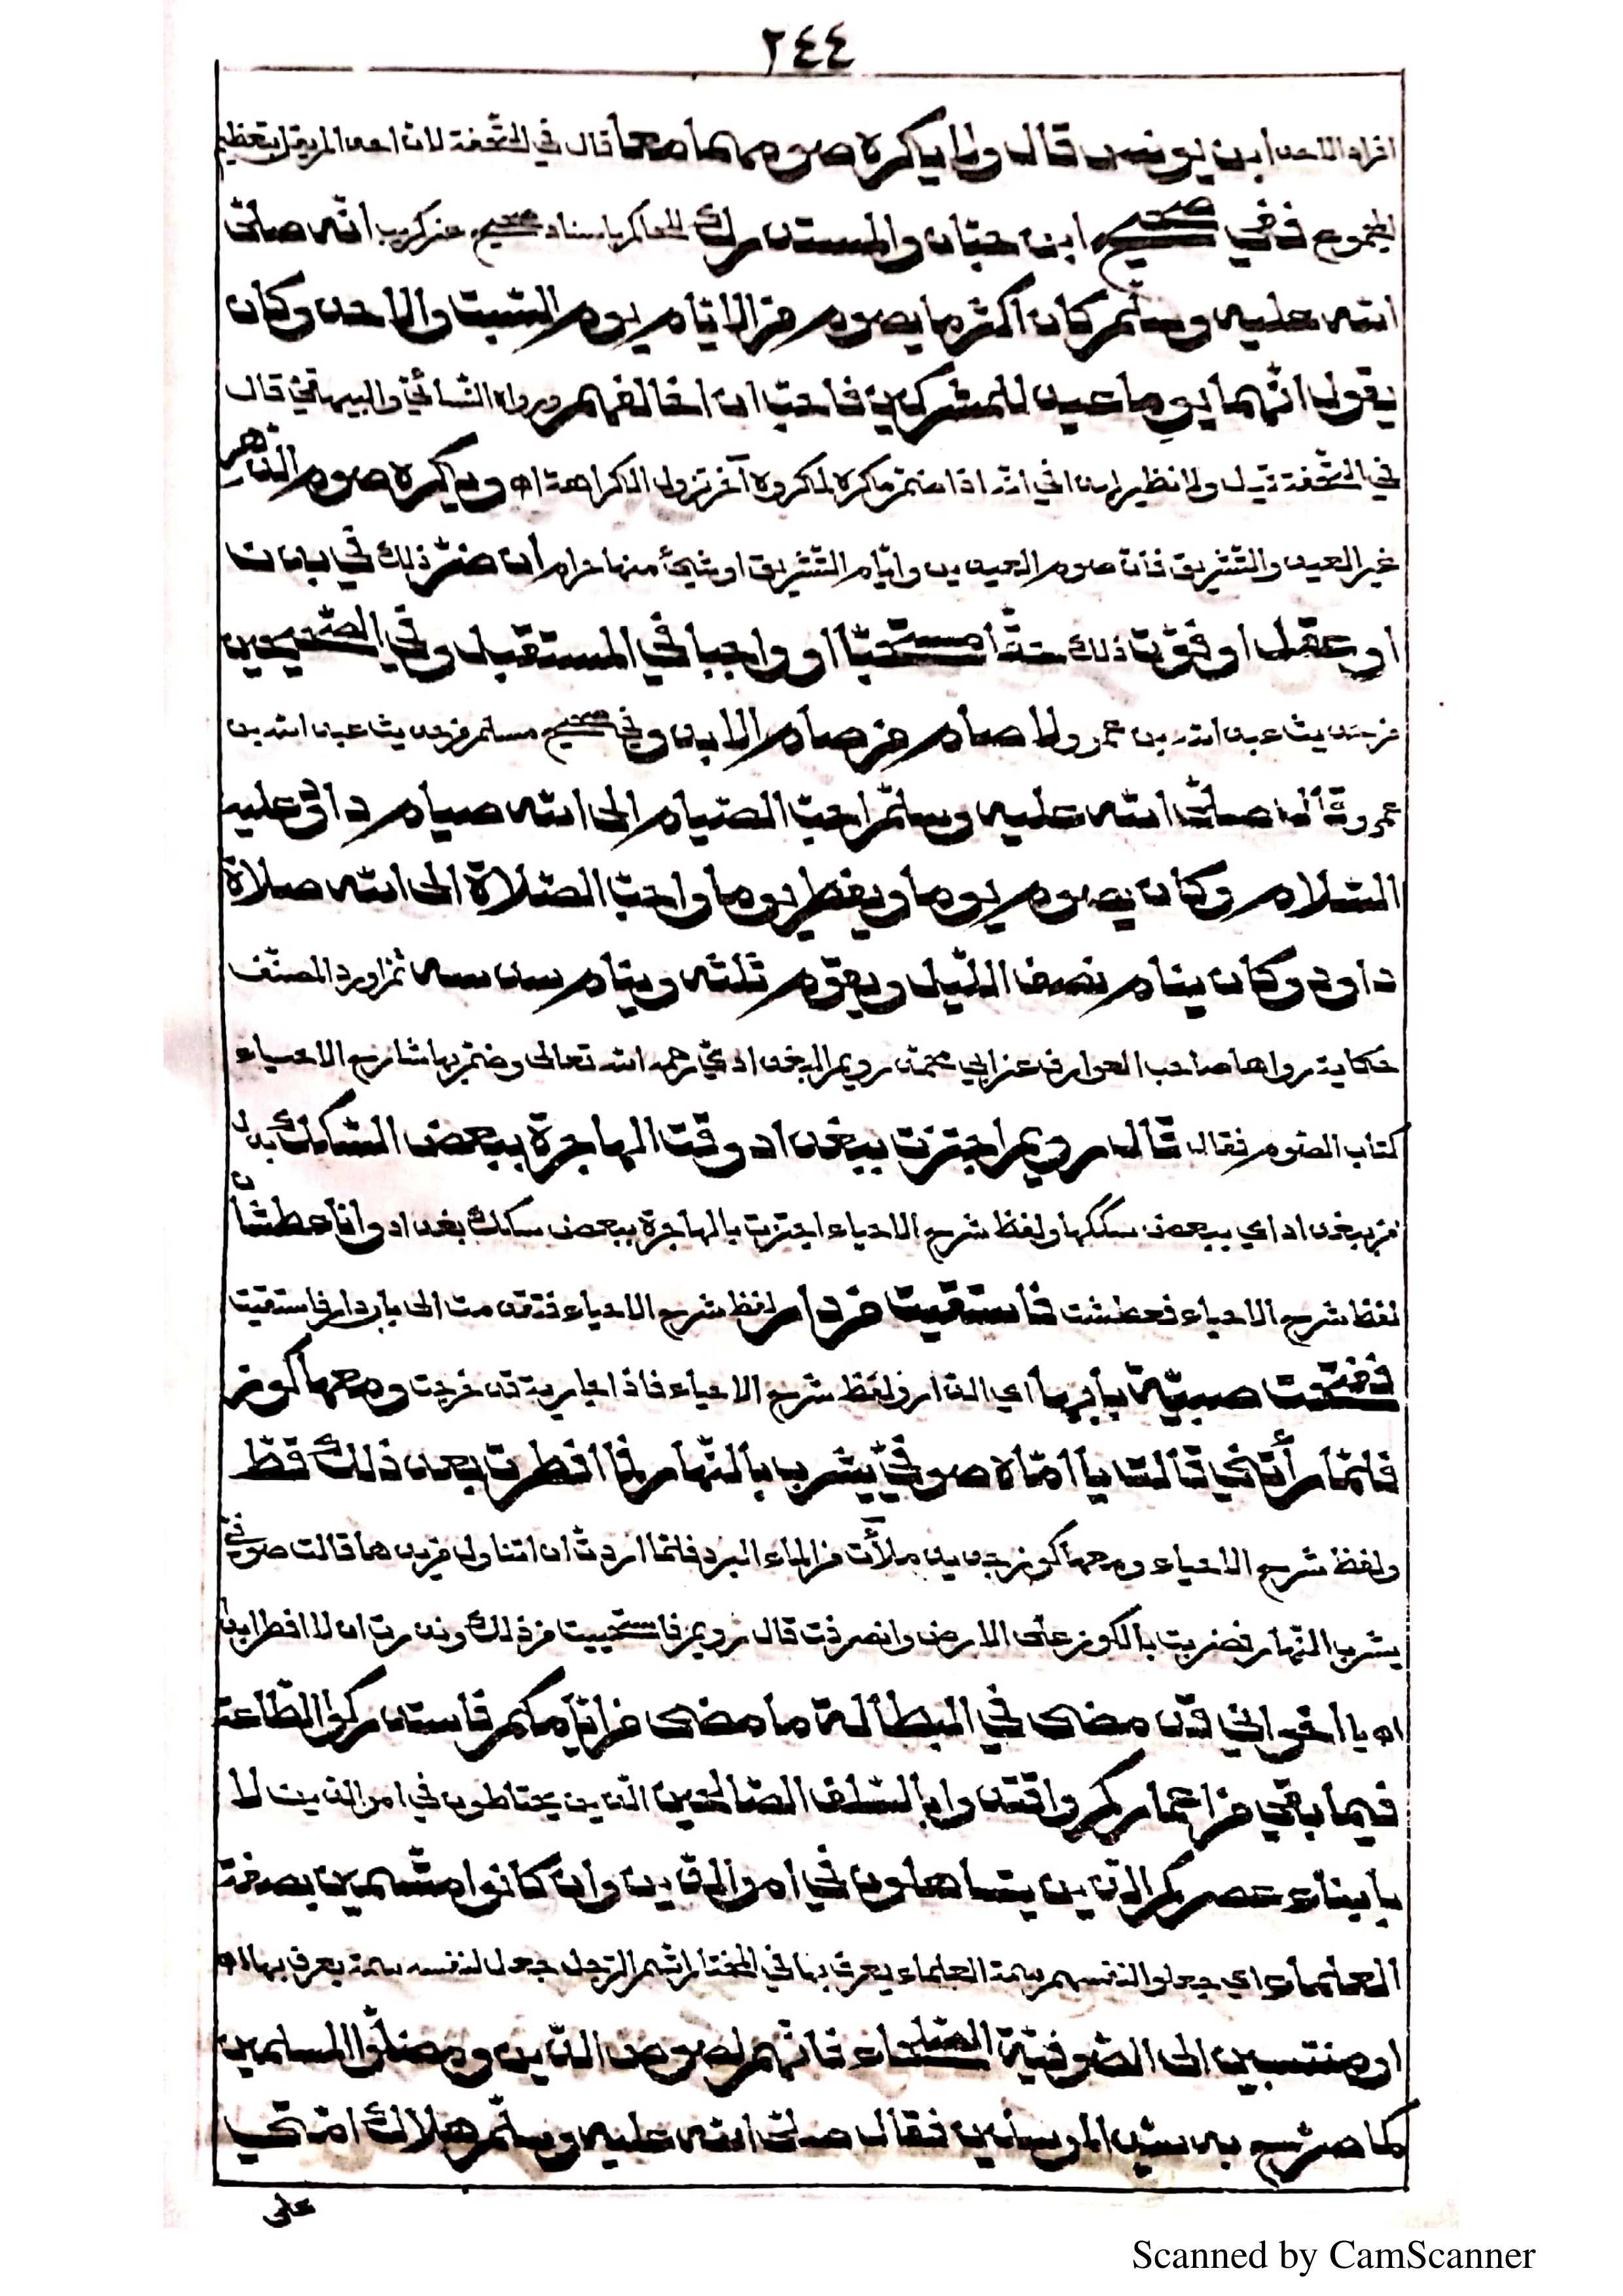 ٢٤٤
افراد الاحد ابن يونس قال ولا يكره صومهما معا قال في التحفة لان احدا لم يقل بتعظيم
المجموع ففي صحيح ابن حبّان والمستدرك للحاكم باسناد صحيح عن كريب انّه صلّى
الله عليه وسلّم كان اكثر ما يصوم من الايّام يوم السّبت والاحد وكان
يقول انّهما يوما عيد للمشركين فاحبّ ان اخالفهم ورواه النّسائي والبيهقي قال
في التّحفة قيل ولا نظير لهذا في انّه اذا ضمّ مكروه لمكروه آخر تزول الكراهة اه ويكره صوم الدّهر
غير العيد والتّشريق فانّ صوم العيدين وايّام التّشريق او شيأ منها حرام ان ضرّ ذلك في بدن
او عقل او فوّت ذلك حقّا مستحبّا او واجبا في المستقبل وفي الصّحيحين
من حديث عبد الله بن عمرو لا صام من صام الابد وفي صحيح مسلم من حديث عبد الله بن
عمرو قال صلّى الله عليه وسلّم احبّ الصّيام الى الله صيام داود عليه
السّلام وكان يصوم يوما ويفطر يوما واحبّ الصّلاة الى الله صلاة
داود وكان ينام نصف اللّيل ويقوم ثلثه وينام سدسه ثمّ اورد المصنّف
حكاية رواها صاحب العوارف عن ابي محمّد رويم البغدادي رحمه الله تعالى وضمّ بها شارح الاحياء
كتاب الصّوم فقال قال رويم اجتزت ببغداد وقت الهاجرة ببعض السّكك بدل
من ببغداد اي ببعض سككها ولفظ شرح الاحياء اجتزت بالهاجرة ببعض سكك بغداد وانا عطشان
لفظ شرح الاحياء فعطشت فاستقيت من دار لفظ شرح الاحياء فتقدمت الى باب دار فاستقيت
ففتحت صبيّة بابها اي الدّار ولفظ شرح الاحياء فاذا جارية قد خرجت ومعها كوز
فلمّا رأتني قالت يا امّاه صوفيّ يشرب بالنّهار فما افطرت بعد ذلك قطّ
ولفظ شرح الاحياء ومعها كوز جديد ملآن من الماء المبرد فلمّا اردت ان اتناول من يدها قالت صوفيّ
يشرب بالنّهار فضربت بالكوز على الارض وانصرفت قال رويم فاستحييت من ذلك ونذرت ان لا افطر ابدا
اه يا اخواني قد مضى في البطالة ما مضى من ايّامكم فاستدركوا الطّاعة
فيما بقي من اعماركم واقتدوا بالسّلف الصّالحين الّذين يحتاطون في امر الدّين لا
بابناء عصركم الّذين يتساهلون في امر الدّين وان كانوا متّسمين بصفة
العلماء اي جعلوا لانفسهم سمة العلماء يعرف بها في المختار اتّسم الرّجل جعل لنفسه سمة يعرف بها اه
او منتسبين الى الصّوفيّة الصّلحاء فانّهم لصوص الدّين ومضلّوا المسلمين
كما صرّح به سيّد المرسلين فقال صلّى الله عليه وسلّم هلاك امّتي
على
Scanned by CamScanner